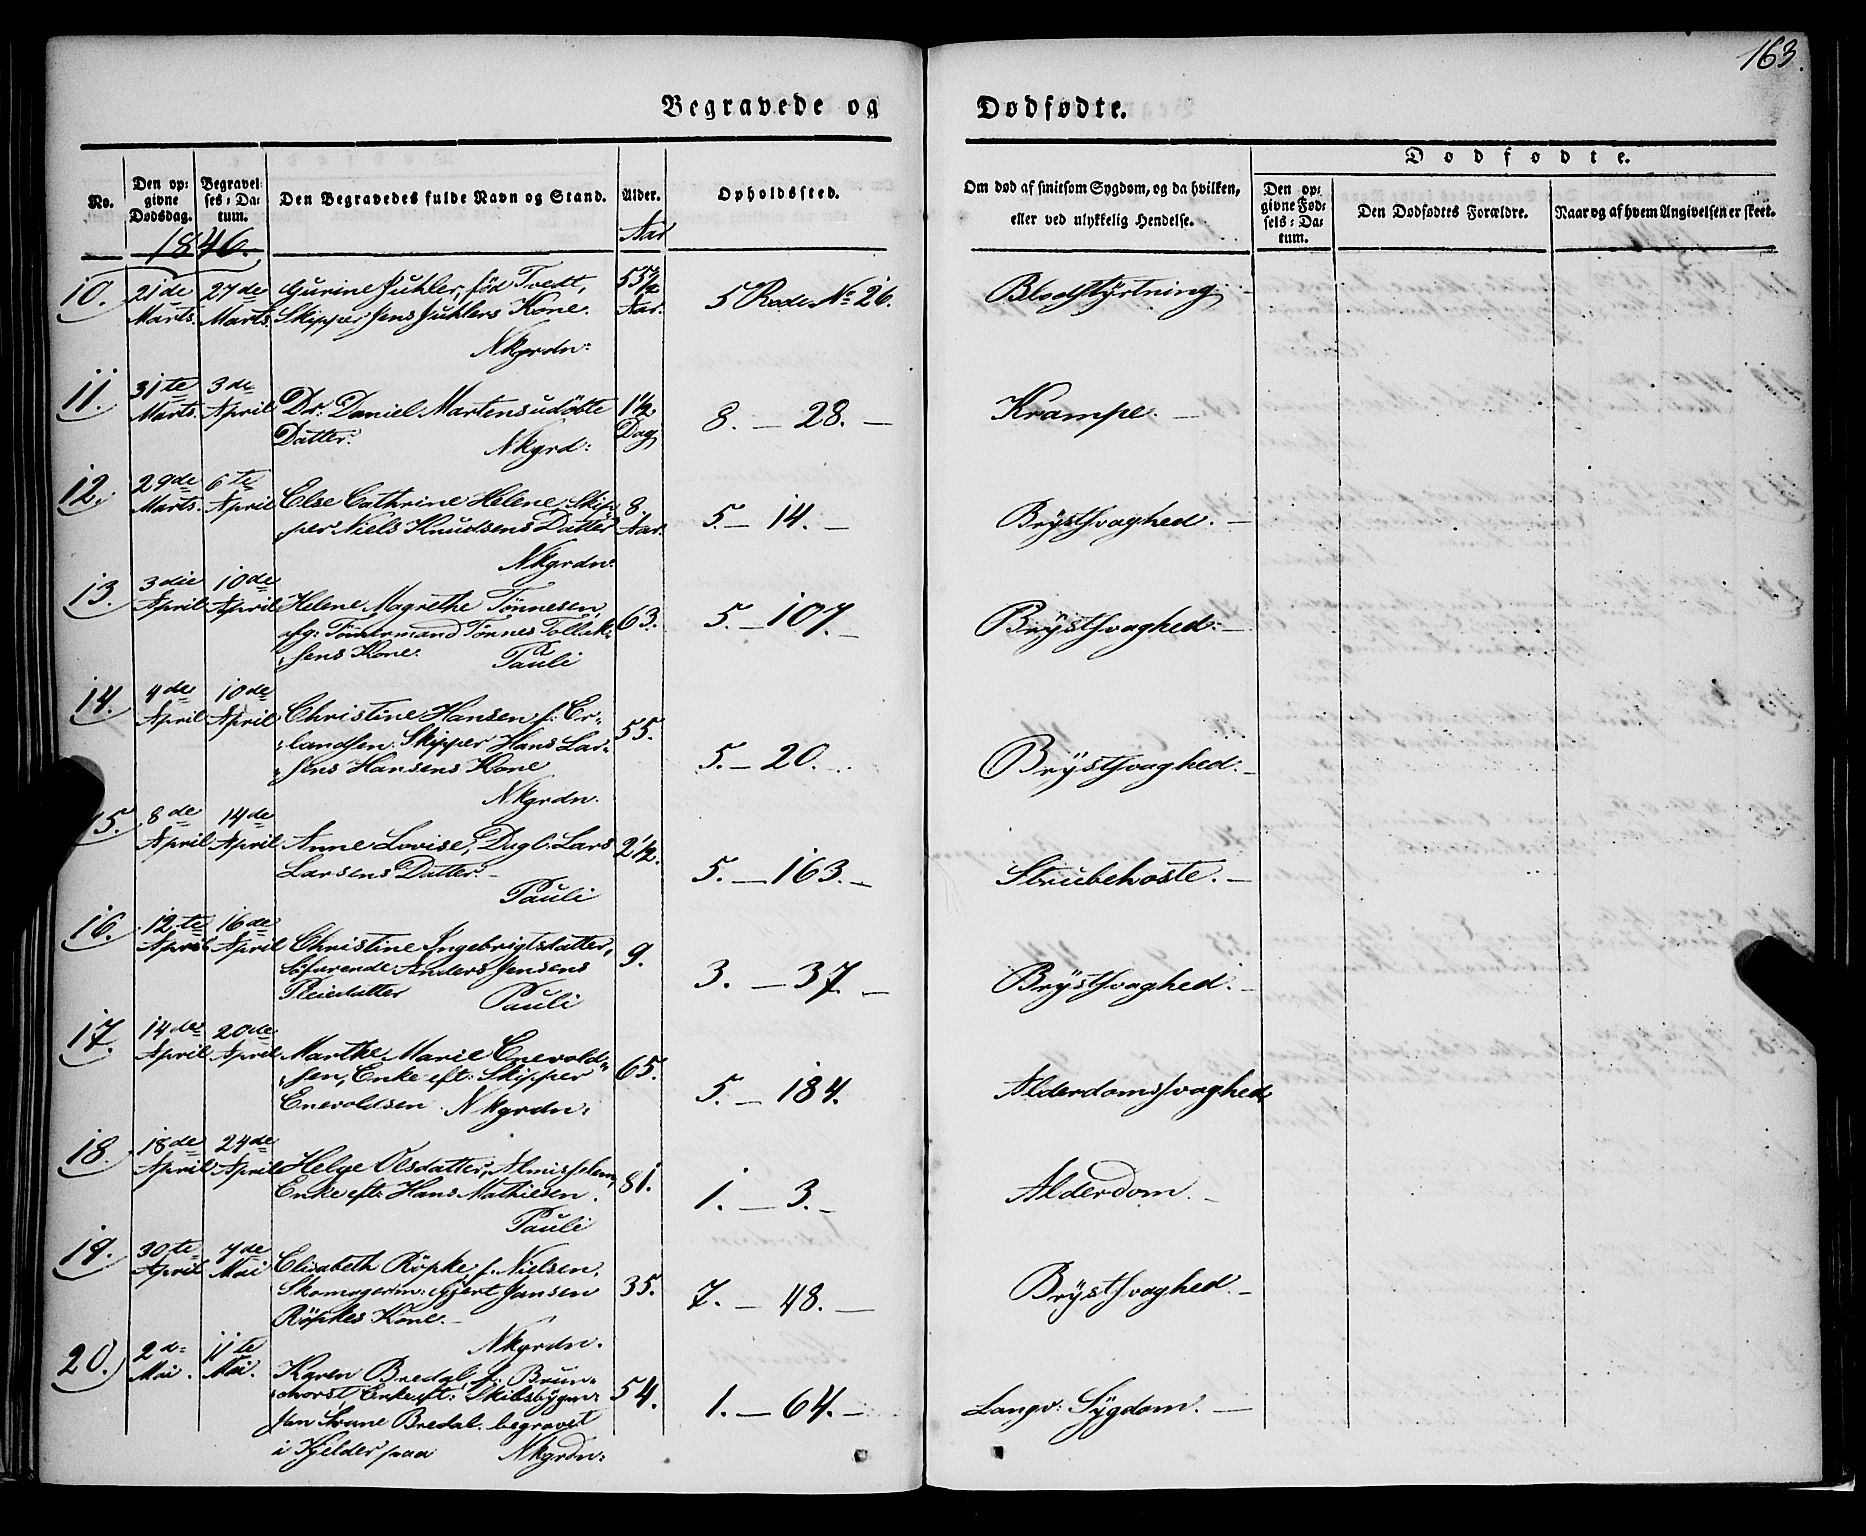 163.
Begravede og Dødfødte.
No.
Den op-
givne
Dødsdag.
Begravel-
ses-Da-
tum.
Den Begravedes fulde Navn og Stand.
Alder.
Opholdssted.
Om død af smitsom Sygdom, og da hvilken,
eller ved ulykkelig Hendelse.
Dødfødte.
Den op-
givne Fød-
sels-Da-
tum.
Den Dødfødtes Forældre.
Naar og af hvem Angivelsen er skeet.
1846.
Aar
10. 21de Marts. 27de Marts. Gurine Juhler, fød Tvedt,
Skipper Jens Juhlers Kone.
Nkgrdn:
55½ Aar. 5 Rode No 26. Blodstyrtning
11. 31te Marts. 3de April Dr. Daniel Martens udøbte
Datter.
Nkgrd:
1½ Dag 8. — 28. — Krampe. —
12. 29de Marts. 6te April Else Cathrine Helene, Skip-
per Niels Knudsens Datter
Nkgrdn:
8. Aar. 5. — 14. — Brÿstsvaghed. —
13. 3die April 10de April Helene Magrethe Tönnesen,
afg: Tömmermand Tönnes Tollak-
sens Kone.
Pauli
63. 5. — 107. — Brÿstsvaghed. —
14. 4de April 10de April Christine Hansen f: Er-
landsen. Skipper Hans Lar-
sens Hansens Kone
Nkgrdn.
55. 5. — 20. Brÿstsvaghed. —
15. 8de April 14de April Anne Lovise, Dagl: Lars
Larsens Datter. —
Pauli
2½. 5. — 163. — Strubehoste. —
16. 12te April 16de April Christine Ingebrigtsdatter,
Söfarende Anders Jensens
Pleiedatter
Pauli
9. 3. — 37. — Brÿstsvaghed. —
17. 14de April 20de April Marthe Marie Enevold-
sen, Enke eft: Skipper
Enevoldsen.
Nkgrdn:
65. 5. — 184. Alderdomssvaghed
18. 18de April 24de April Helge Olsdatter, Almisselem,
Enke eft: Hans Mathiesen.
Pauli
81. 1. — 3. — Alderdom. —
19. 30te April 7de Mai Elisabeth Röpke, f. Nielsen.
Skomagerm: Gjert Jansen
Röpkes Kone. —
Nkgrdn.
35. 7. — 48. — Brÿstsvaghed. —
20. 2d- Mai. 11te Mai. Karen Bredal, f: Brun-
chorst, Enke eft: Skibsbygm:
Jan Bredal. begravet
i Kjelder paa
Nkgrdn:
54. 1. — 64. — Langv: Sÿgdom. —